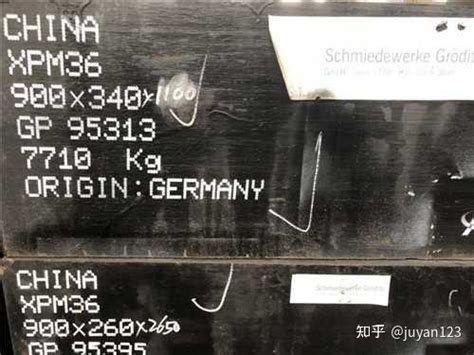 CHINA
XPM36
900x340x1100
GP 95313
7710 Kg
ORIGIN:GERMANY
Schmiedewerke Gröditz
CHINA
XPM36
900x260x2650
GP 95395
知乎 @juyan123